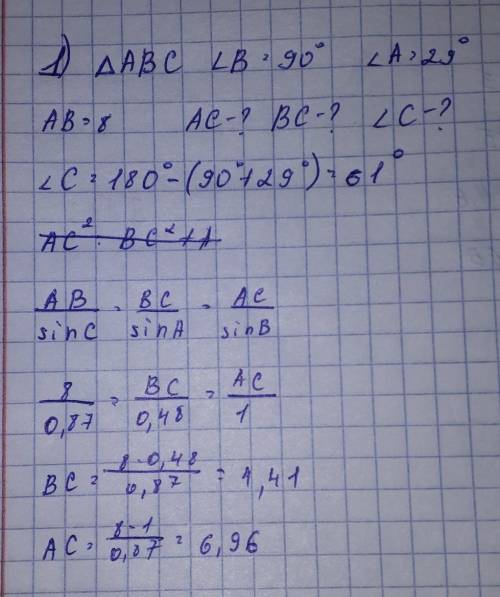 1) △ABC ∠B = 90° ∠A = 29°
AB = 8 AC - ? BC - ? ∠C - ?
∠C = 180° - (90° + 29°) = 61°
AB/sinC = BC/sinA = AC/sinB
8/0,87 = BC/0,48 = AC/1
BC = 8·0,48/0,87 = 4,41
AC = 8·1/0,87 = 6,96